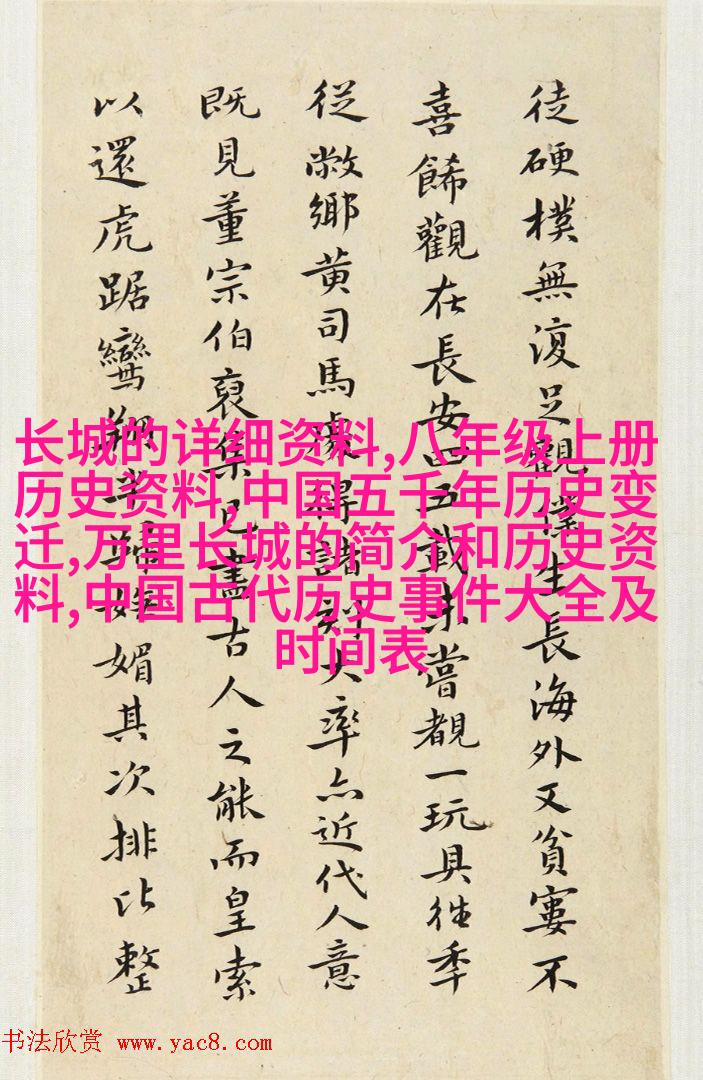 徒硬樸無復足觀僕生長海外又貧窶不
喜餙觀在長安四五載未嘗覩一玩具往季
從敝鄉黃司馬處得諸刻大率亦近代人意
既見董宗伯裒集見盡古人之能而皇索
以還虎踞鸞翔媚其次排比整
长城的详细资料,八年级上册
历史资料,中国五千年历史变
迁,万里长城的简介和历史资
料,中国古代历史事件大全及
时间表
书法欣赏 www.yac8.com